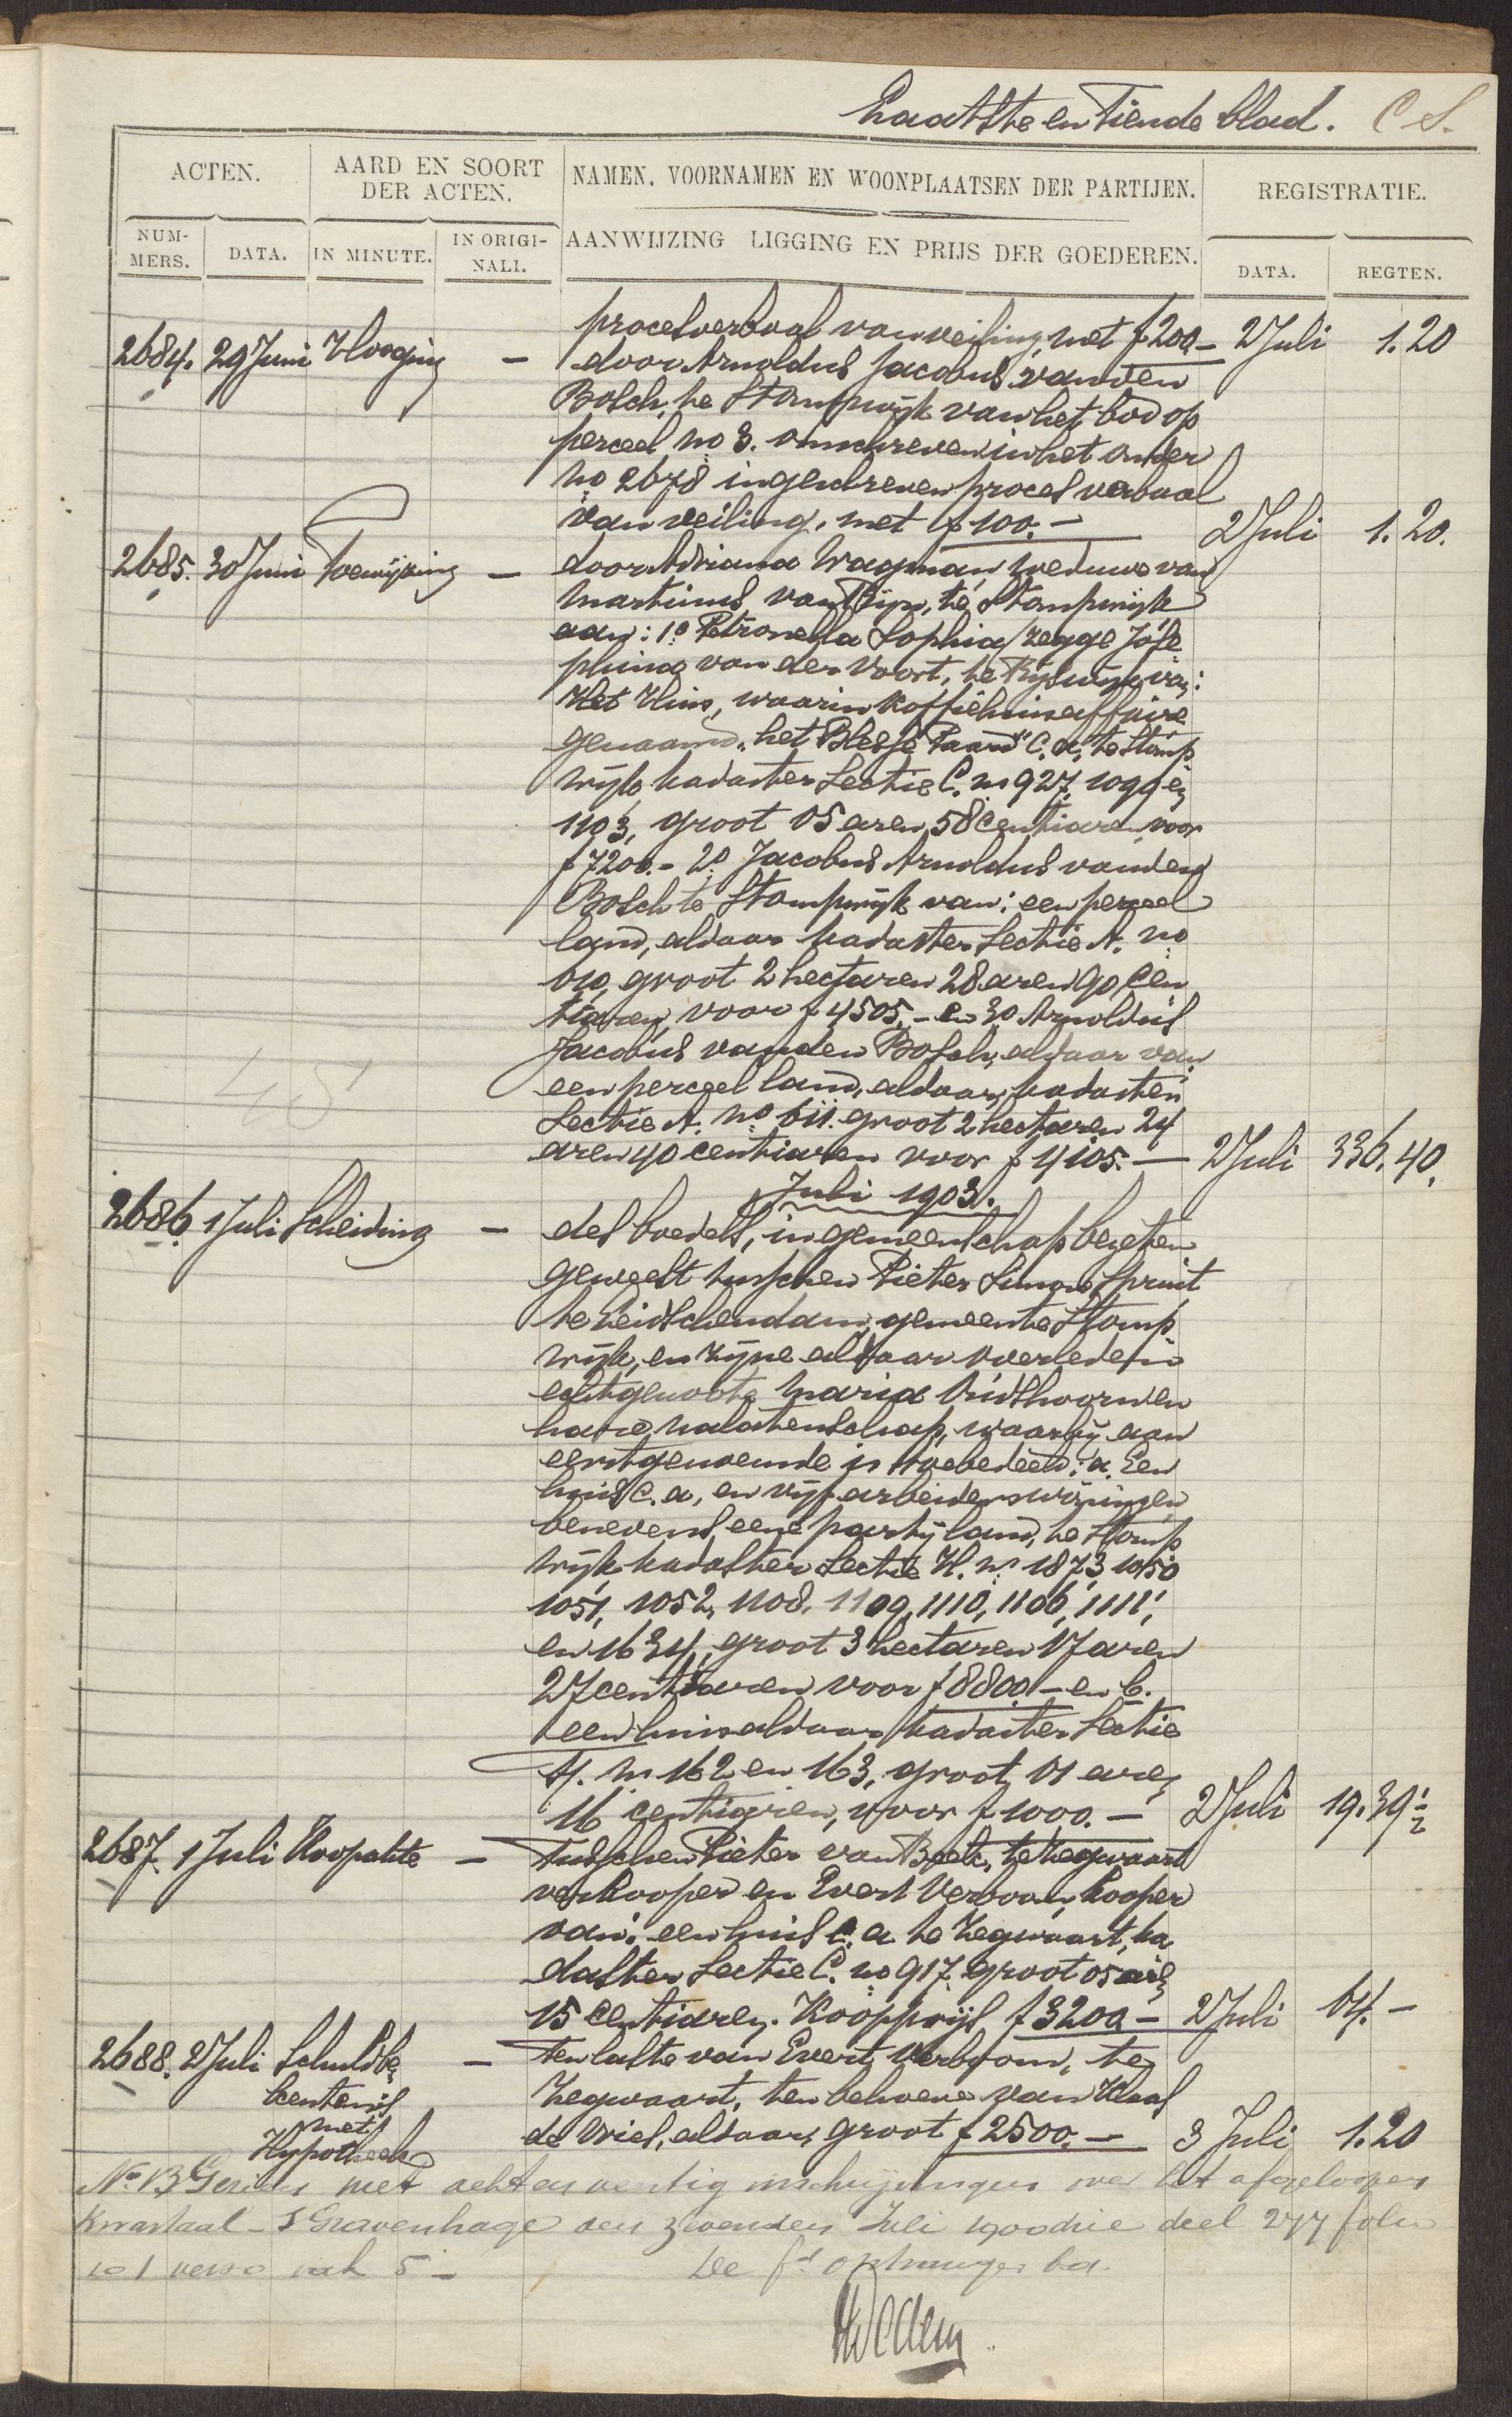 Laatste en Tiende blad. C S.
ACTEN. AARD EN SOORT DER ACTEN. NAMEN, VOORNAMEN EN WOONPLAATSEN DER PARTIJEN. REGISTRATIE.
NUMMERS. DATA. IN MINUTE. IN ORIGINALI. AANWIJZING LIGGING EN PRIJS DER GOEDEREN. DATA. REGTEN.
procesverbaal van veiling, met f 200.- 2 Juli 1.20
2684. 29 Juni Hooging — door Arnoldus Jacobus van den
Bosch, te Stompwijk van het bod op
perceel no 3. omschreven in het onder
no 2678 ingeschreven proces verbaal
van veiling, met f 100.- 2 Juli 1.20.
2685. 30 Juni Toewijzing — door Adriana Wagman, weduwe van
Martinus van Rijn, te Stompwijk
aan: 1o Petronella Sophia/zegge Jose
phina van der Voort, te Rijswijk van:
Het Huis, waarin koffiehuisaffaire
genaamd "het Blesse Paard" c.a. te Stomp
wijk, kadaster Sectie C. no 927, 1099 en
1103, groot 05 aren 58 centiaren, voor
f 7200.- 2o Jacobus Arnoldus van den
Bosch te Stompwijk van: een perceel
land, aldaar kadaster Sectie A. no
610, groot 2 hectaren 28 aren 90 cen
tiaren, voor f 4505.- en 3o Arnoldus
Jacobus van den Bosch, aldaar van
een perceel land, aldaar, kadaster
Sectie A. no 611. groot 2 hectaren 24
aren 40 centiaren voor f 4105.— 2 Juli 336.40.
Juli 1903.
2686. 1 Juli Scheiding — des boedels, in gemeenschap bezeten
geweest tusschen Pieter Simon Spruit
te Leidschendam, gemeente Stomp
wijk, en zijne aldaar overleden
echtgenoote Maria
hare nalatenschap, waarbij aan
eerstgenoemde is toebedeeld: a. Een
huis c.a, en vijf arbeiderswoningen
benevens eene partij land, te Stomp
wijk kadaster Sectie H. no 1873, 1050
1051, 1052, 1108, 1109, 1110, 1106, 1111,
en 1634, groot 3 hectaren 17 aren
27 centiaren voor f 8800.- en b.
een huis aldaar, kadaster Sectie
H. no 162 en 163, groot 01 aren
16 centiaren, voor f 1000.— 2 Juli 19.39½
2687. 1 Juli Koopakte — tusschen Pieter van Beek, te Zegwaart
verkooper en Evert Verboom, kooper
van: een huis c.a. te Zegwaart, ka
daster Sectie C. no 917 groot 05 aren
15 centiaren. Koopprijs f 3200.- 2 Juli 64.-
2688. 2 Juli Schuldbe — Ten laste van Evert Verboom, te
kentenis Zegwaart, ten behoeve van Klaas
met de Vries, aldaar, groot f 2500.— 3 Juli 1.20
Hypotheek
No 13 Gezien met acht en inschrijvingen over het afgeloopen
kwartaal - 's Gravenhage den Juli 1900drie deel 277 folio
101 verso vak 5 - De fd ontvanger ba.